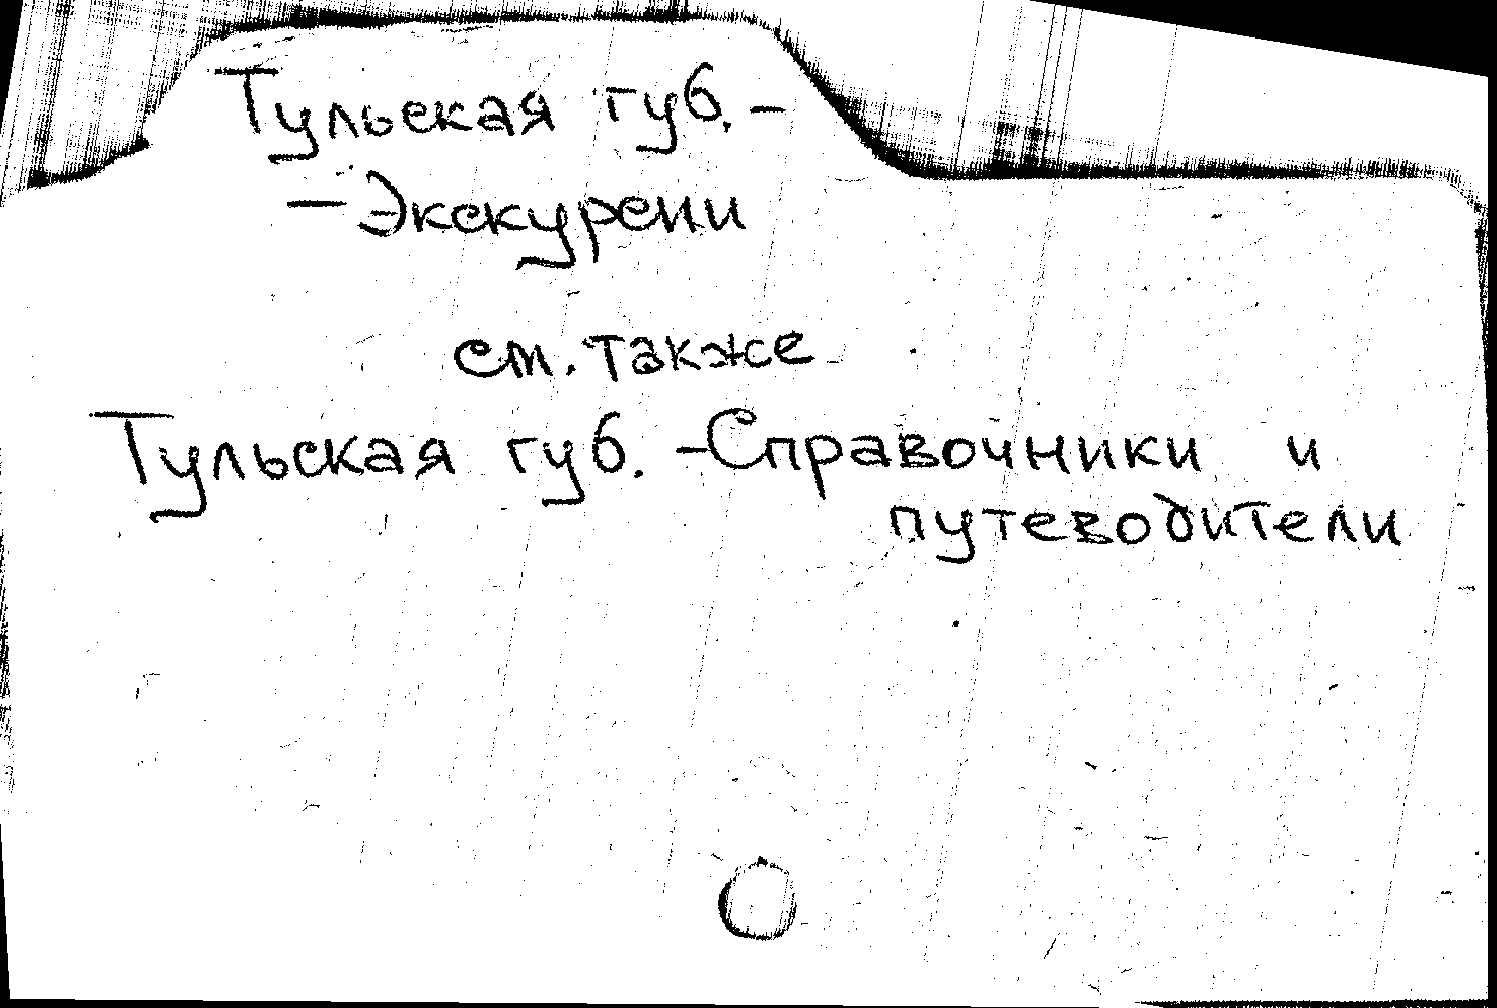 Тульская губ. -
- Экскурсии
см. также
Тульская губ. - Справочники и
путеводители